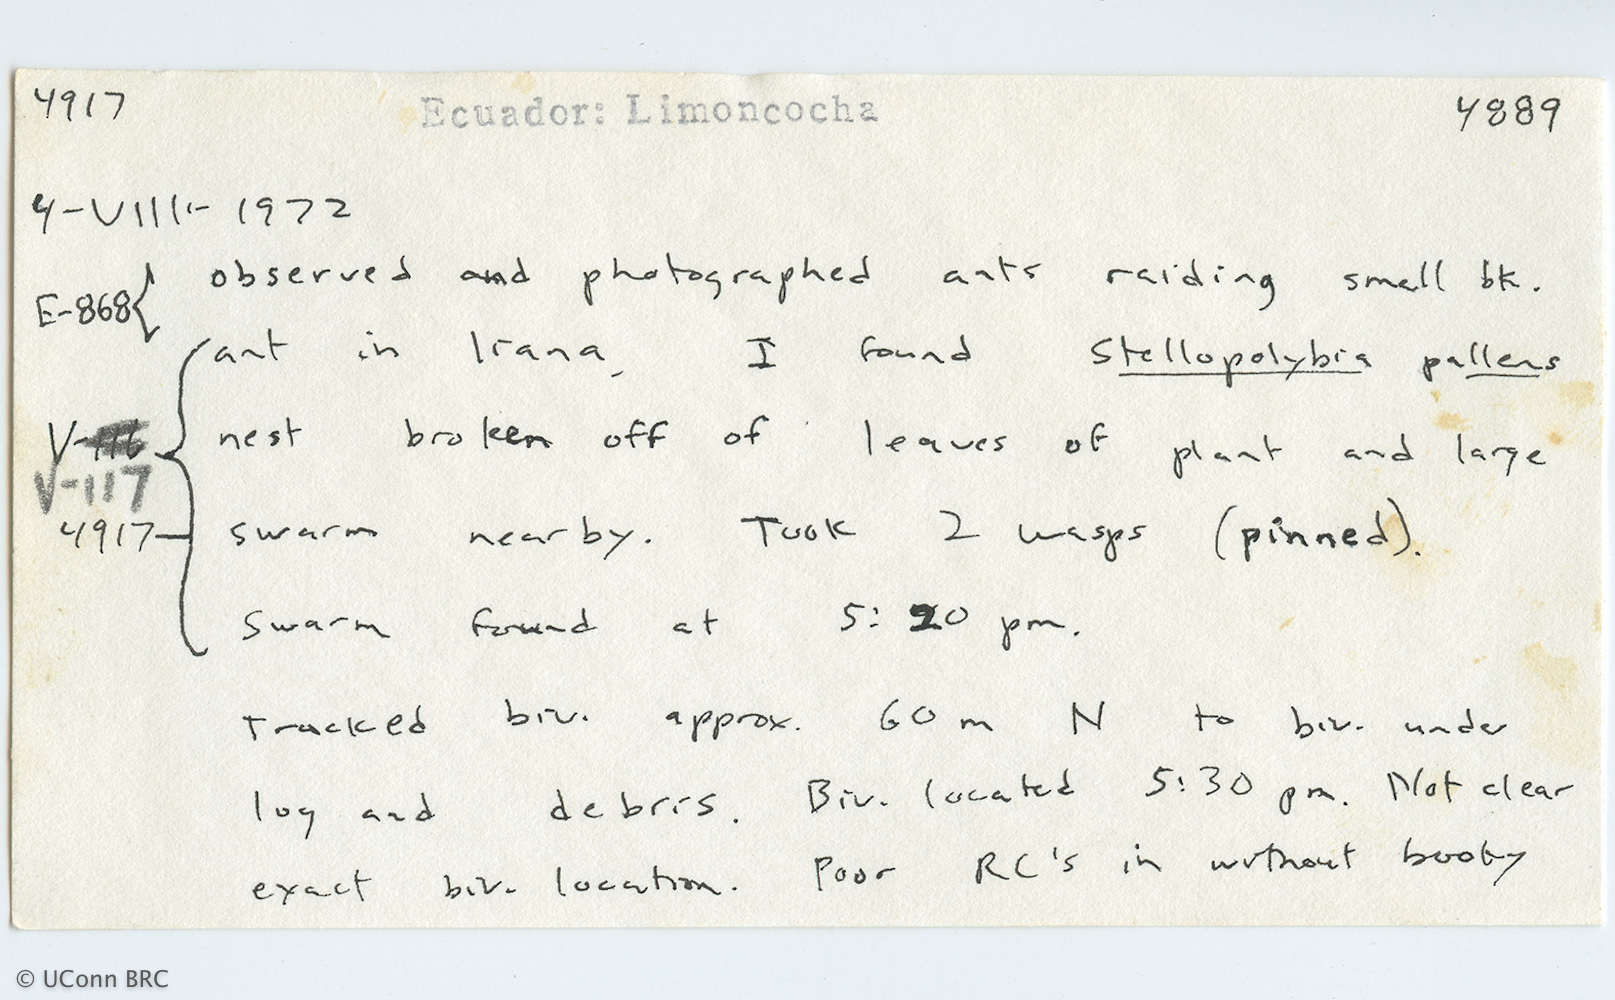 4917 Ecuador: Limoncocha 4889
4-VIII-1972
E-868 observed and photographed ants raiding small bk.
ant in liana. I found Stellopolybia pallens
V-116 nest broken off of leaves of plant and large
V-117
4917 swarm nearby. Took 2 wasps (pinned).
Swarm found at 5:20 pm.
Tracked biv. approx. 60 m N to biv. under
log and debris. Biv. located 5:30 pm. Not clear
exact biv. location. Poor RC's in without booty
© UConn BRC